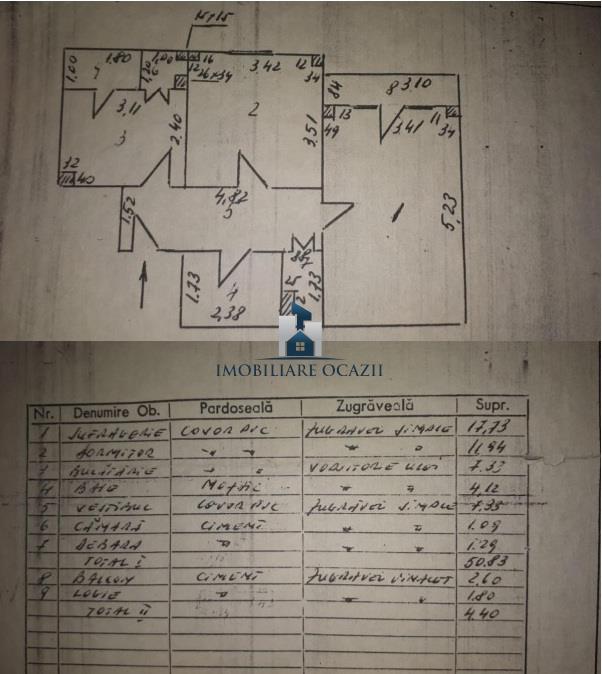 15×15
1,00
1.80
7
1,20
6
1,00
16
12
16×34
3,42
12
34
84
8
3,10
3,11
3
2.40
2
3,51
13
49
3,41
11
34
32
40
1.52
4,82
5
1
5,23
88
1.73
4
2,38
25
2
1.73
IMOBILIARE OCAZII
Nr. Denumire Ob. Pardoseală Zugrăveală Supr.
1 SUFRAGERIE COVOR PVC ZUGRAVELI SIMPLE 17,73
2 DORMITOR " " " " 11,94
3 BUCĂTĂRIE " " VOPSITORIE ULEI 7.33
4 BAIE MOZAIC " " 4,12
5 VESTIBUL COVOR PVC ZUGRAVELI SIMPLE 7.33
6 CĂMARĂ CIMENT " " 1.09
7 DEBARA " " " 1.29
TOTAL I 50.83
8 BALCON CIMENT ZUGRAVELI 2,60
9 LOGIE " " " 1.80
TOTAL II 4.40